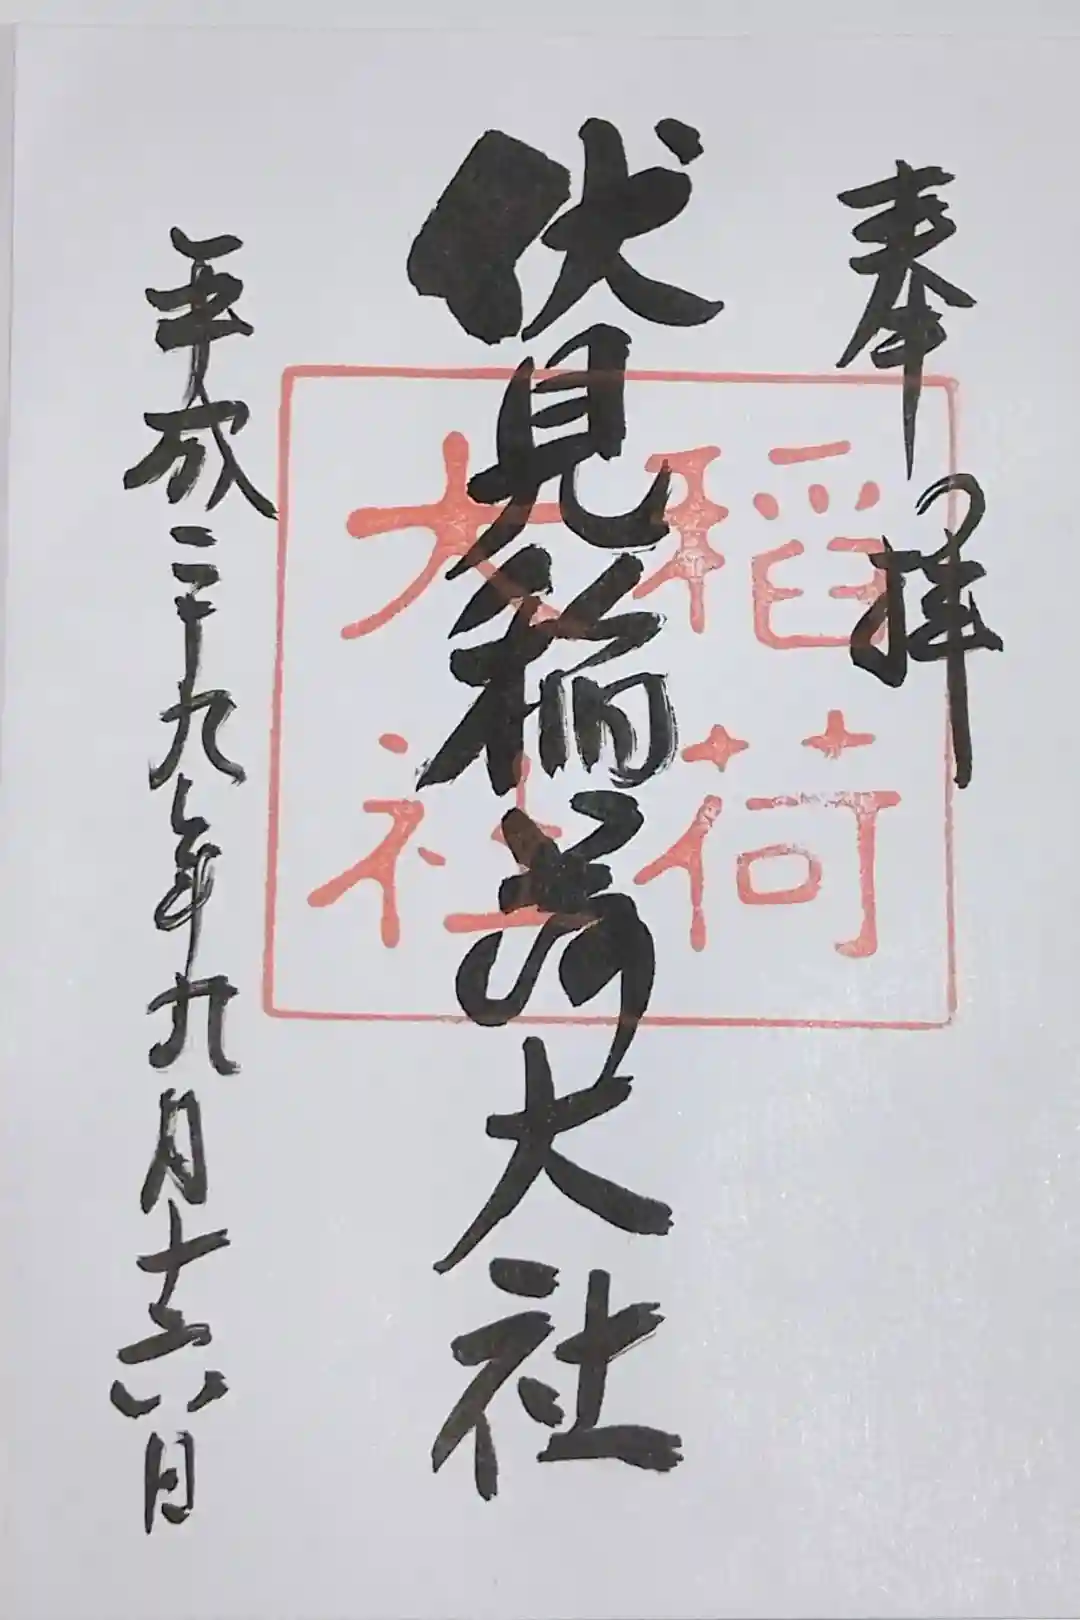 奉拝
伏見稲荷大社
平成二十九年九月十六日
稲荷
大社